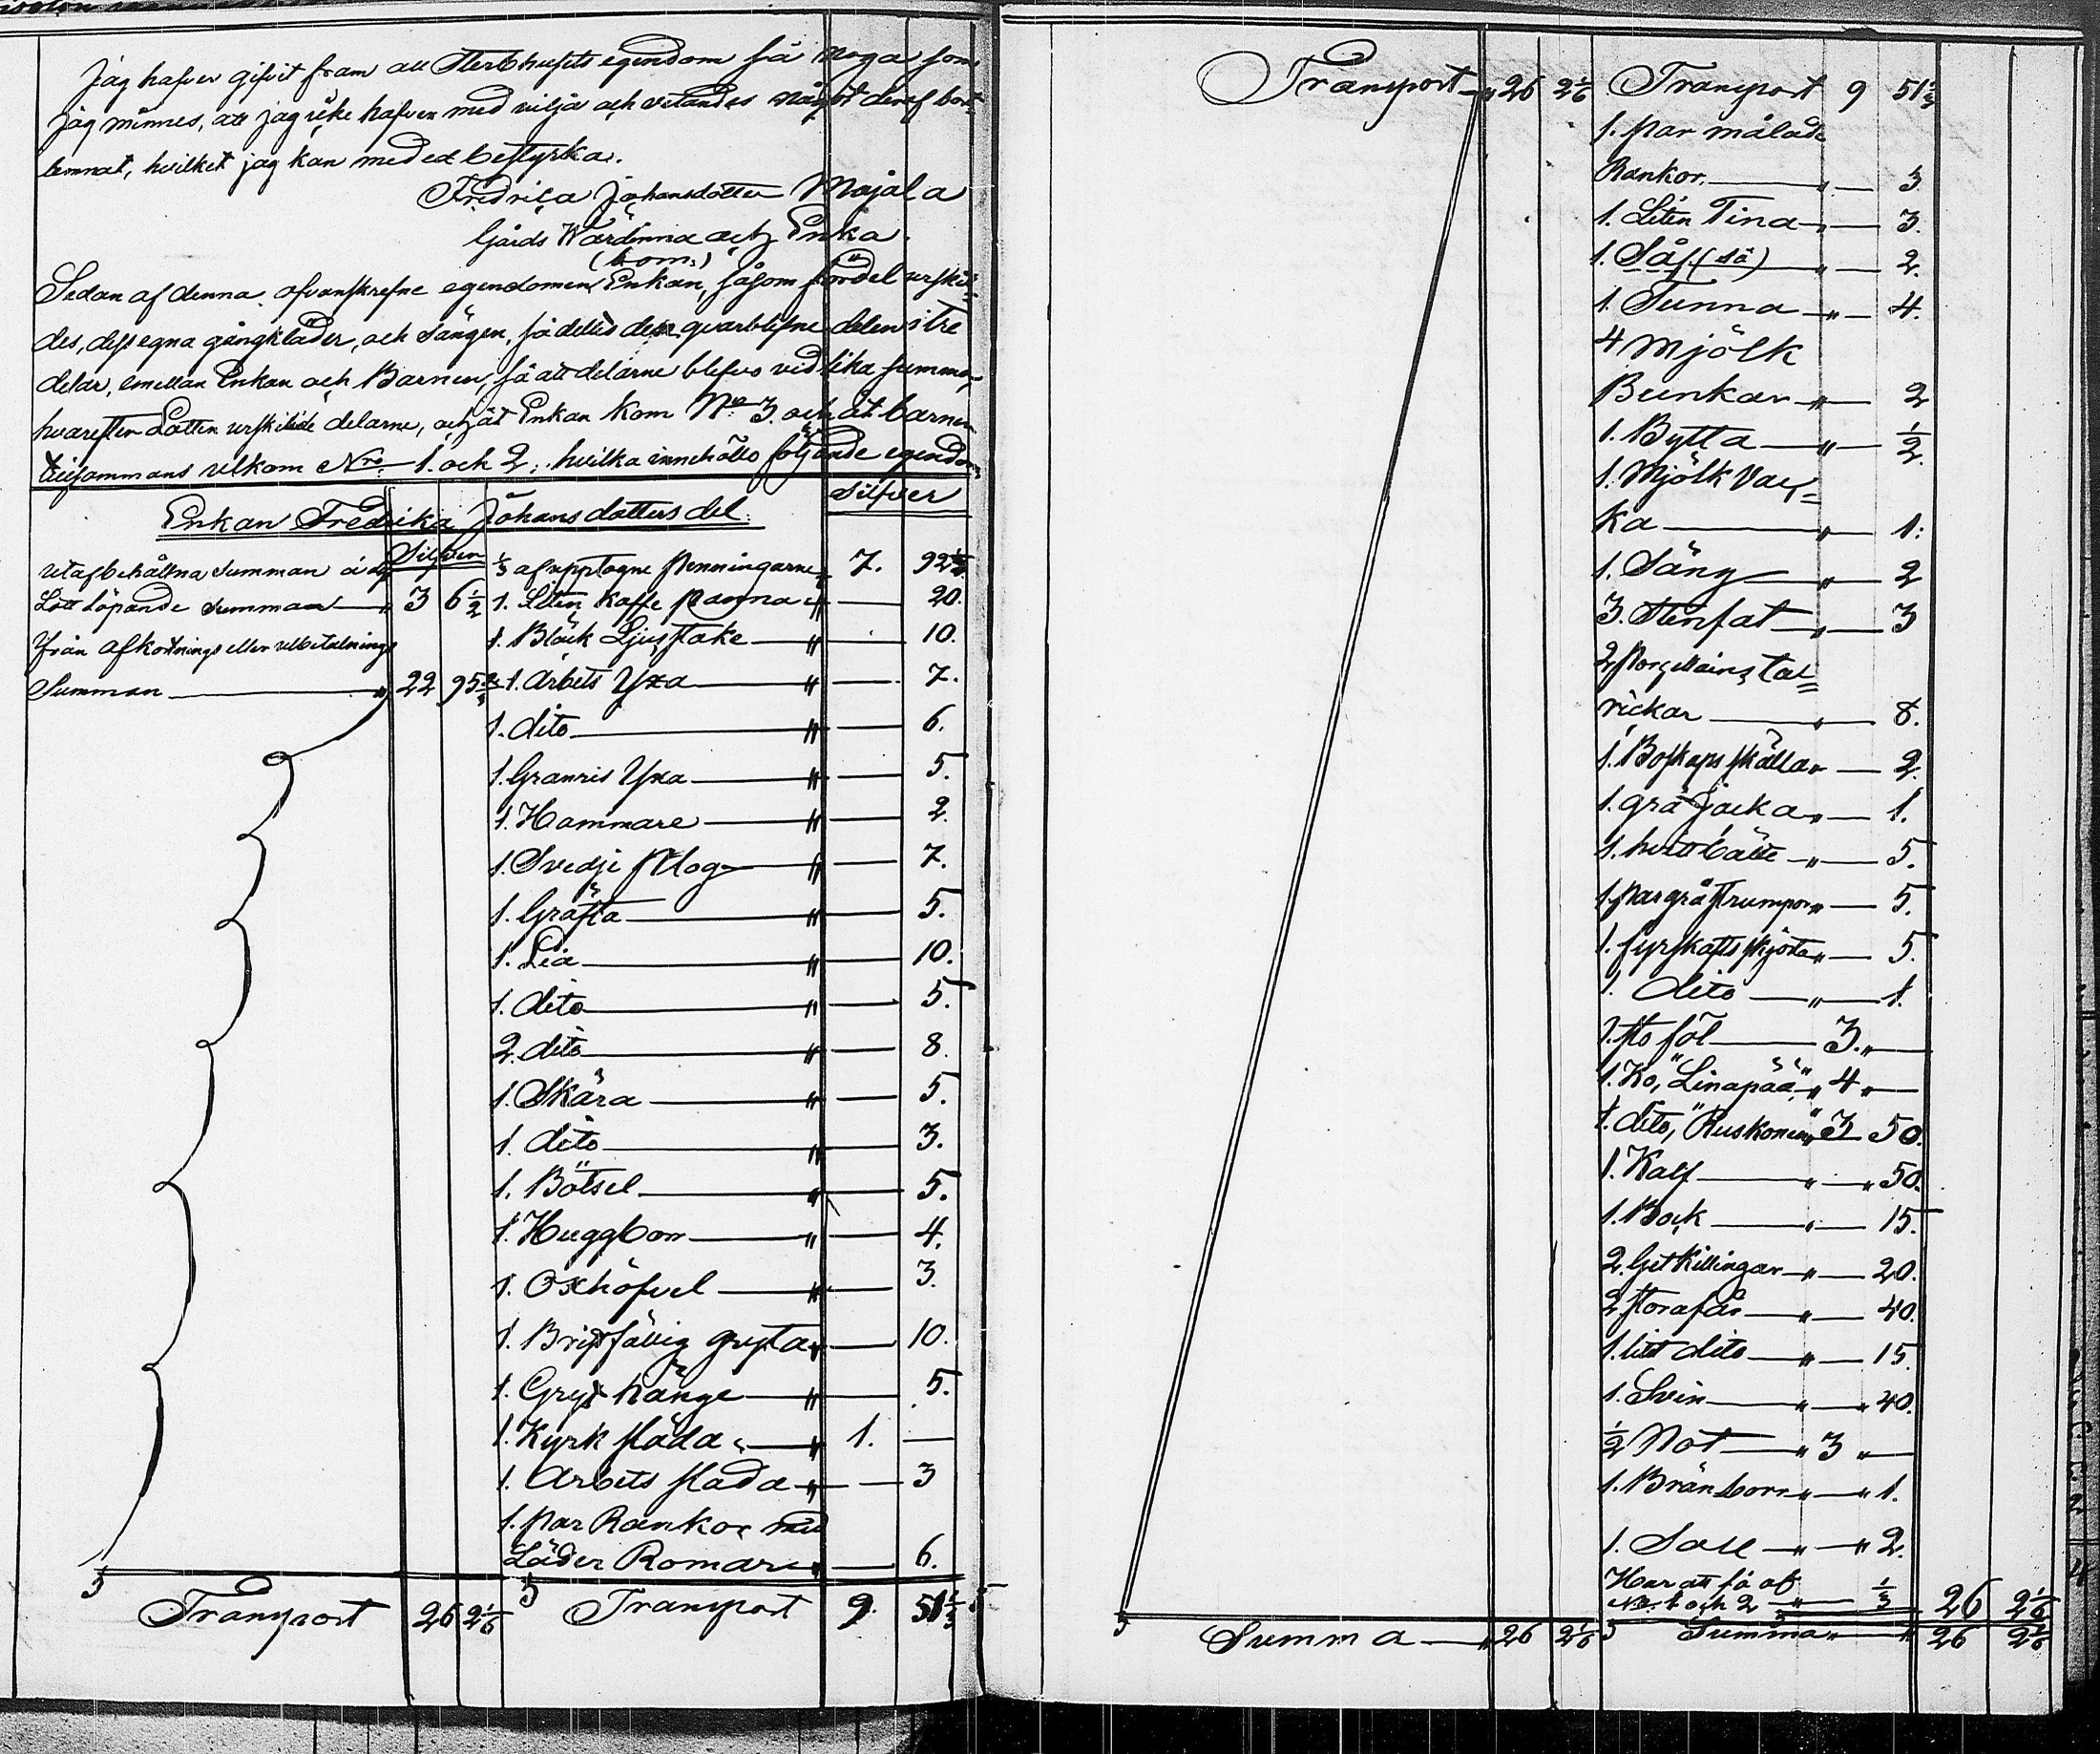 Jag hafver gifvit fram all Sterbhusets egendom så noga som
jag minnes, att jag icke hafver med vilja och vetandes något deraf bort-
lemnat, hvilket jag kan med ed bestyrka.
Fredrica Johansdotter Majala
Gårds Wärdinna och Enka.
(bom.)
Sedan af denna ofvanskrefne egendomen Enkan, såsom fördel urskil-
des, dess egna gångkläder, och Sängen, så deltes den qvarblefne delen i tre
delar, emellan Enkan och Barnen, så att delarne blefvo vid lika summa,
hvarefter Lotten urskilde delarne, och åt Enkan kom No 3. och åt barnen
tillsammans utkom Nro 1. och 2. hvilka innehöllo följande egendom
Enkan Fredrika Johansdotters del.
Silfver
Silfver
Utaf behållna Summan å
Lott löpande Summan 3 6 1/2
Från afkortnings eller utbetalnings
Summan 22 95 2/3
Transport 26 2 1/6
1/3 af upptogne penningarne 7. 92 1/3
1. Liten kaffe panna " 20.
1. Bläck Ljusstake " 10.
1. Arbets Yxa " 7.
1. dito " 6.
1. Granris Yxa " 5.
1. Hammare " 2.
1. Svedje Plog " 7.
1. Gräfta " 5.
1. Lia " 10.
1. dito " 5.
2. dito " 8.
1. Skära " 5.
1. dito " 3.
1. Bötsel " 5.
1. Huggborr " 4.
1. Oxhöfvel " 3.
1. Bristfällig gryta " 10.
1. Gryt hänge " 5.
1. Kyrk släda " 1. —
1. Arbets släda " 3
1. par Rankor med
Läder Romar " 6.
Transport 9. 51 1/3
Transport " 26 2 1/6
Summa " 26 2 1/6
Transport 9 51 1/3
1. par målade
Rankor " 3.
1. Liten Tina " 3.
1. Såf (så) " 2.
1. Tunna " 4.
4 Mjölk
Bunkar " 2
1. Bytta " 1/2
1. Mjölk Vac=
ka " 1.
1. Säng " 2
3. Stenfat " 3
2 Porcellains tal=
rickar " 8.
1. Boskaps skällor 2.
1. grå Jacka " 1.
1. hvitt bälte " 5.
1. par grå strumpor " 5.
1. fyrskafts skjorta " 5.
1. dito " 1.
1. sto föl 3. "
1. Ko, "Linapää" " 4 "
1. dito, "Ruskonen" " 3 50.
1. Kalf " " 50.
1. Bock " 15.
2. Get Killingar " 20.
2. stora får " 40.
1. litet dito " 15.
1. Svin " " 40.
1/2 Not " 3 "
1. Bränborr " " 1.
1. Såll " " 2.
Har att få af
No. 1 och 2 " 1/3 26 2 1/6
Summa " 26 2 1/6